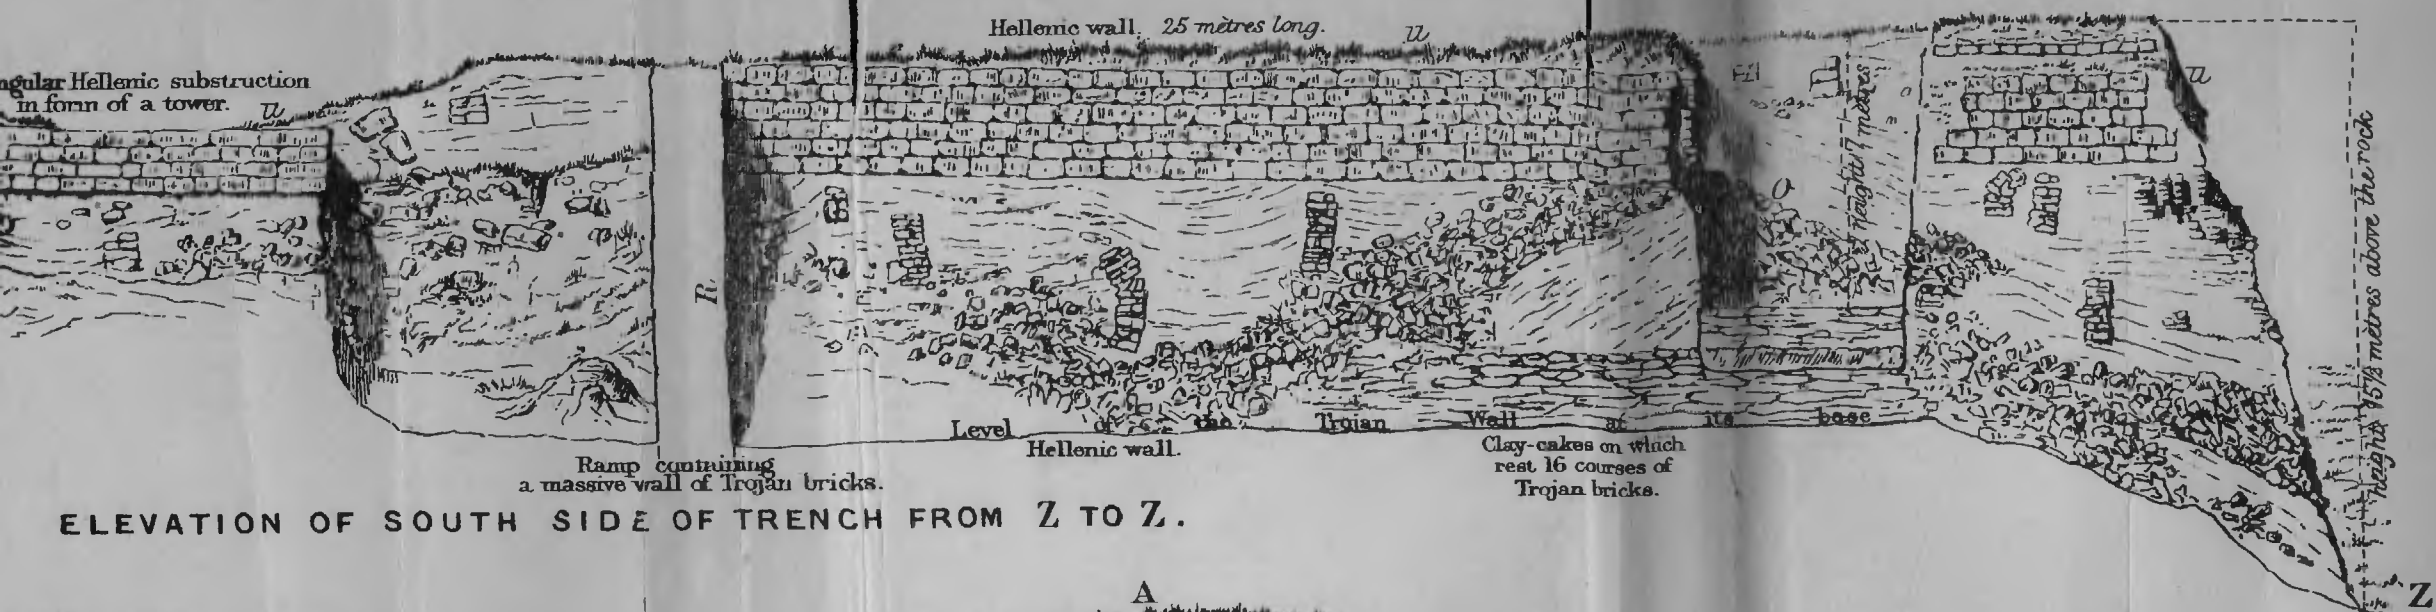 Hellenic wall. 25 mètres long.
u
Hellenic substruction
in form of a tower.
u
u
R
O
height 17 metres
height 15⅓ metres above the rock
Level of the Trojan Wall at its base
Hellenic wall.
Ramp containing
a massive wall of Trojan bricks.
Clay-cakes on which
rest 16 courses of
Trojan bricks.
ELEVATION OF SOUTH SIDE OF TRENCH FROM Z TO Z.
A
Z